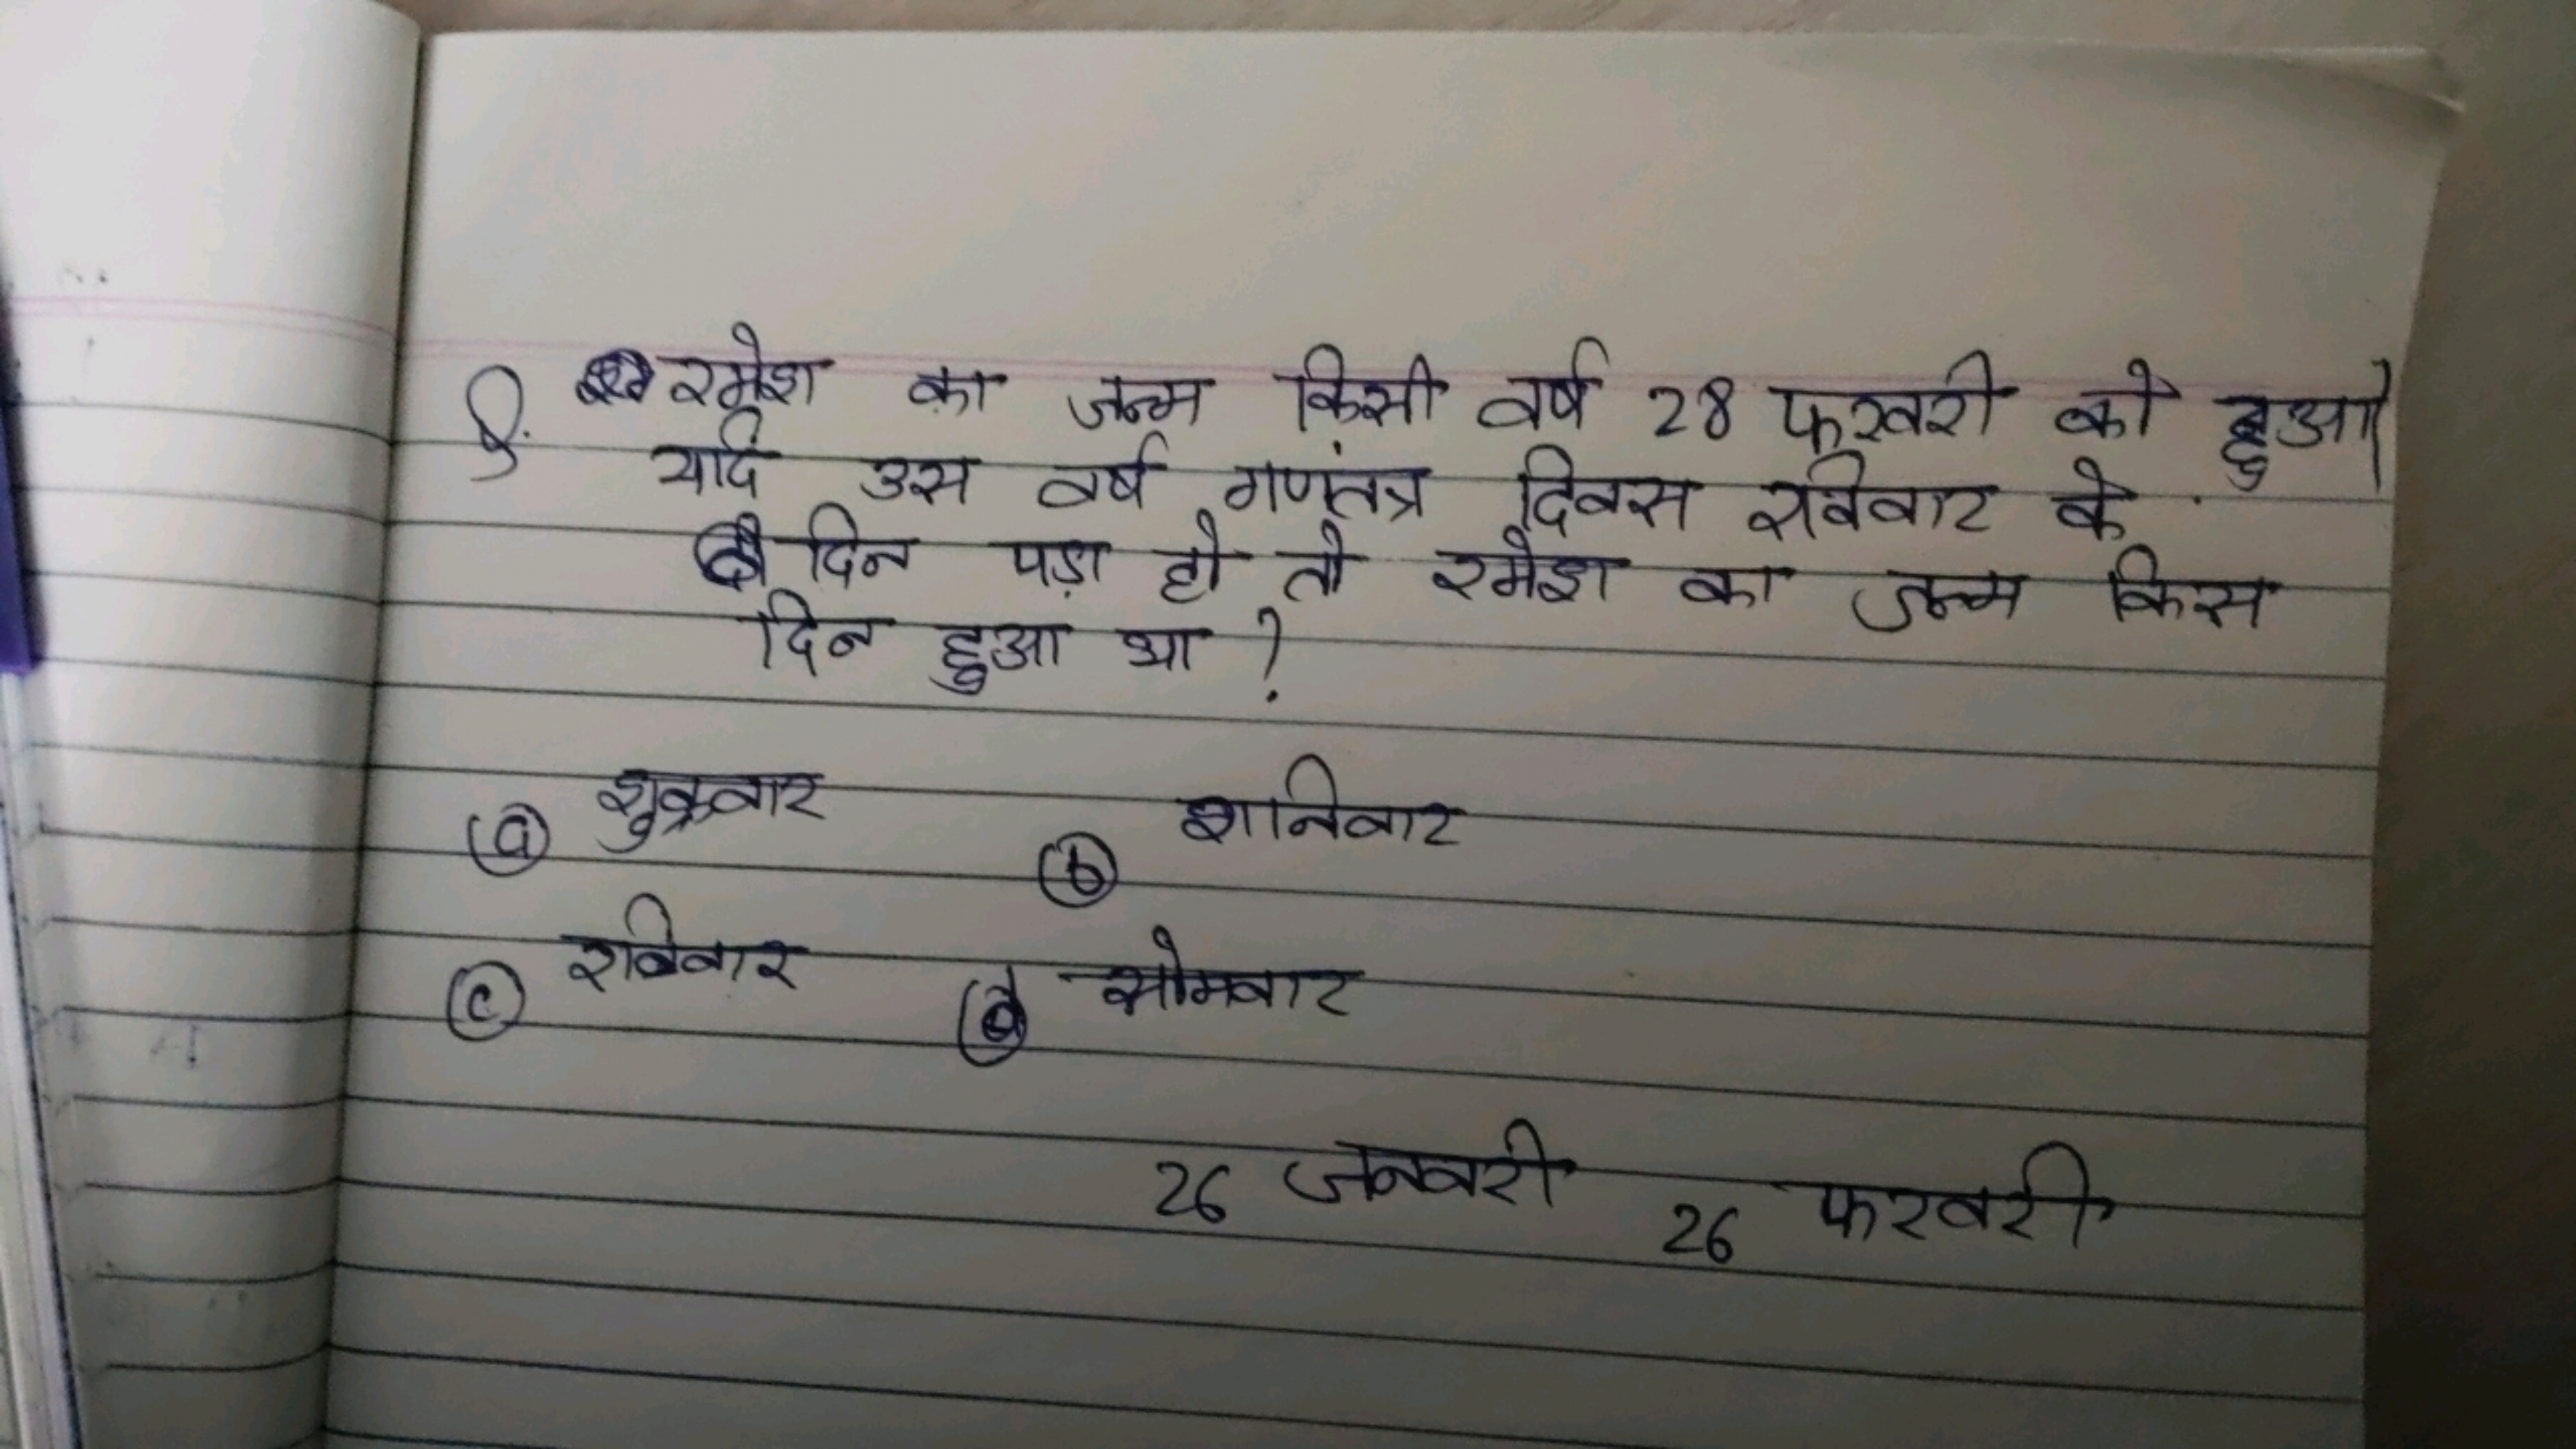 Q. रमेश का जन्म किसी वर्ष 28 फरवरी को हुआ।
यदि उस वर्ष गणंतत्र दिवस रविवार के
दिन पड़ा हो तो रमेश का जन्म किस
दिन हुआ था ?
(a) शुक्रवार (b) शनिवार
(c) रविवार (d) सोमवार
26 जनवरी 26 फरवरी